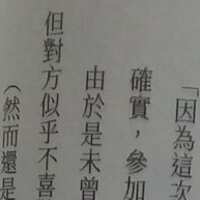 「因為這次
確實，參加
由於是未曾
但對方似乎不喜
（然而還是